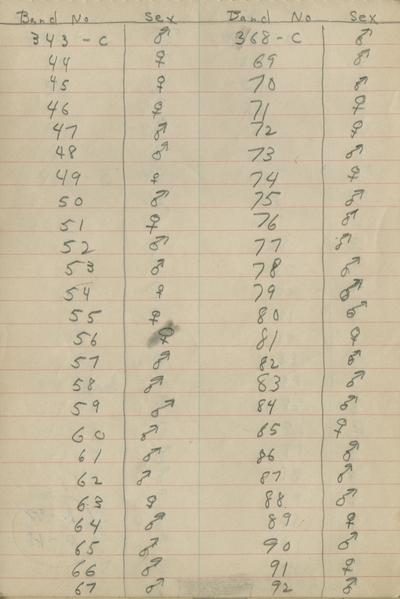 Band No Sex Band No Sex
343-C ♂ 368-C ♂
44 ♀ 69 ♂
45 ♀ 70 ♂
46 ♀ 71 ♀
47 ♂ 72 ♀
48 ♂ 73 ♂
49 ♀ 74 ♀
50 ♂ 75 ♂
51 ♀ 76 ♂
52 ♂ 77 ♂
53 ♂ 78 ♂
54 ♀ 79 ♂
55 ♀ 80 ♂
56 ♀ 81 ♀
57 ♂ 82 ♂
58 ♂ 83 ♂
59 ♂ 84 ♂
60 ♂ 85 ♀
61 ♂ 86 ♂
62 ♂ 87 ♂
63 ♀ 88 ♂
64 ♂ 89 ♀
65 ♂ 90 ♂
66 ♂ 91 ♀
67 ♂ 92 ♂